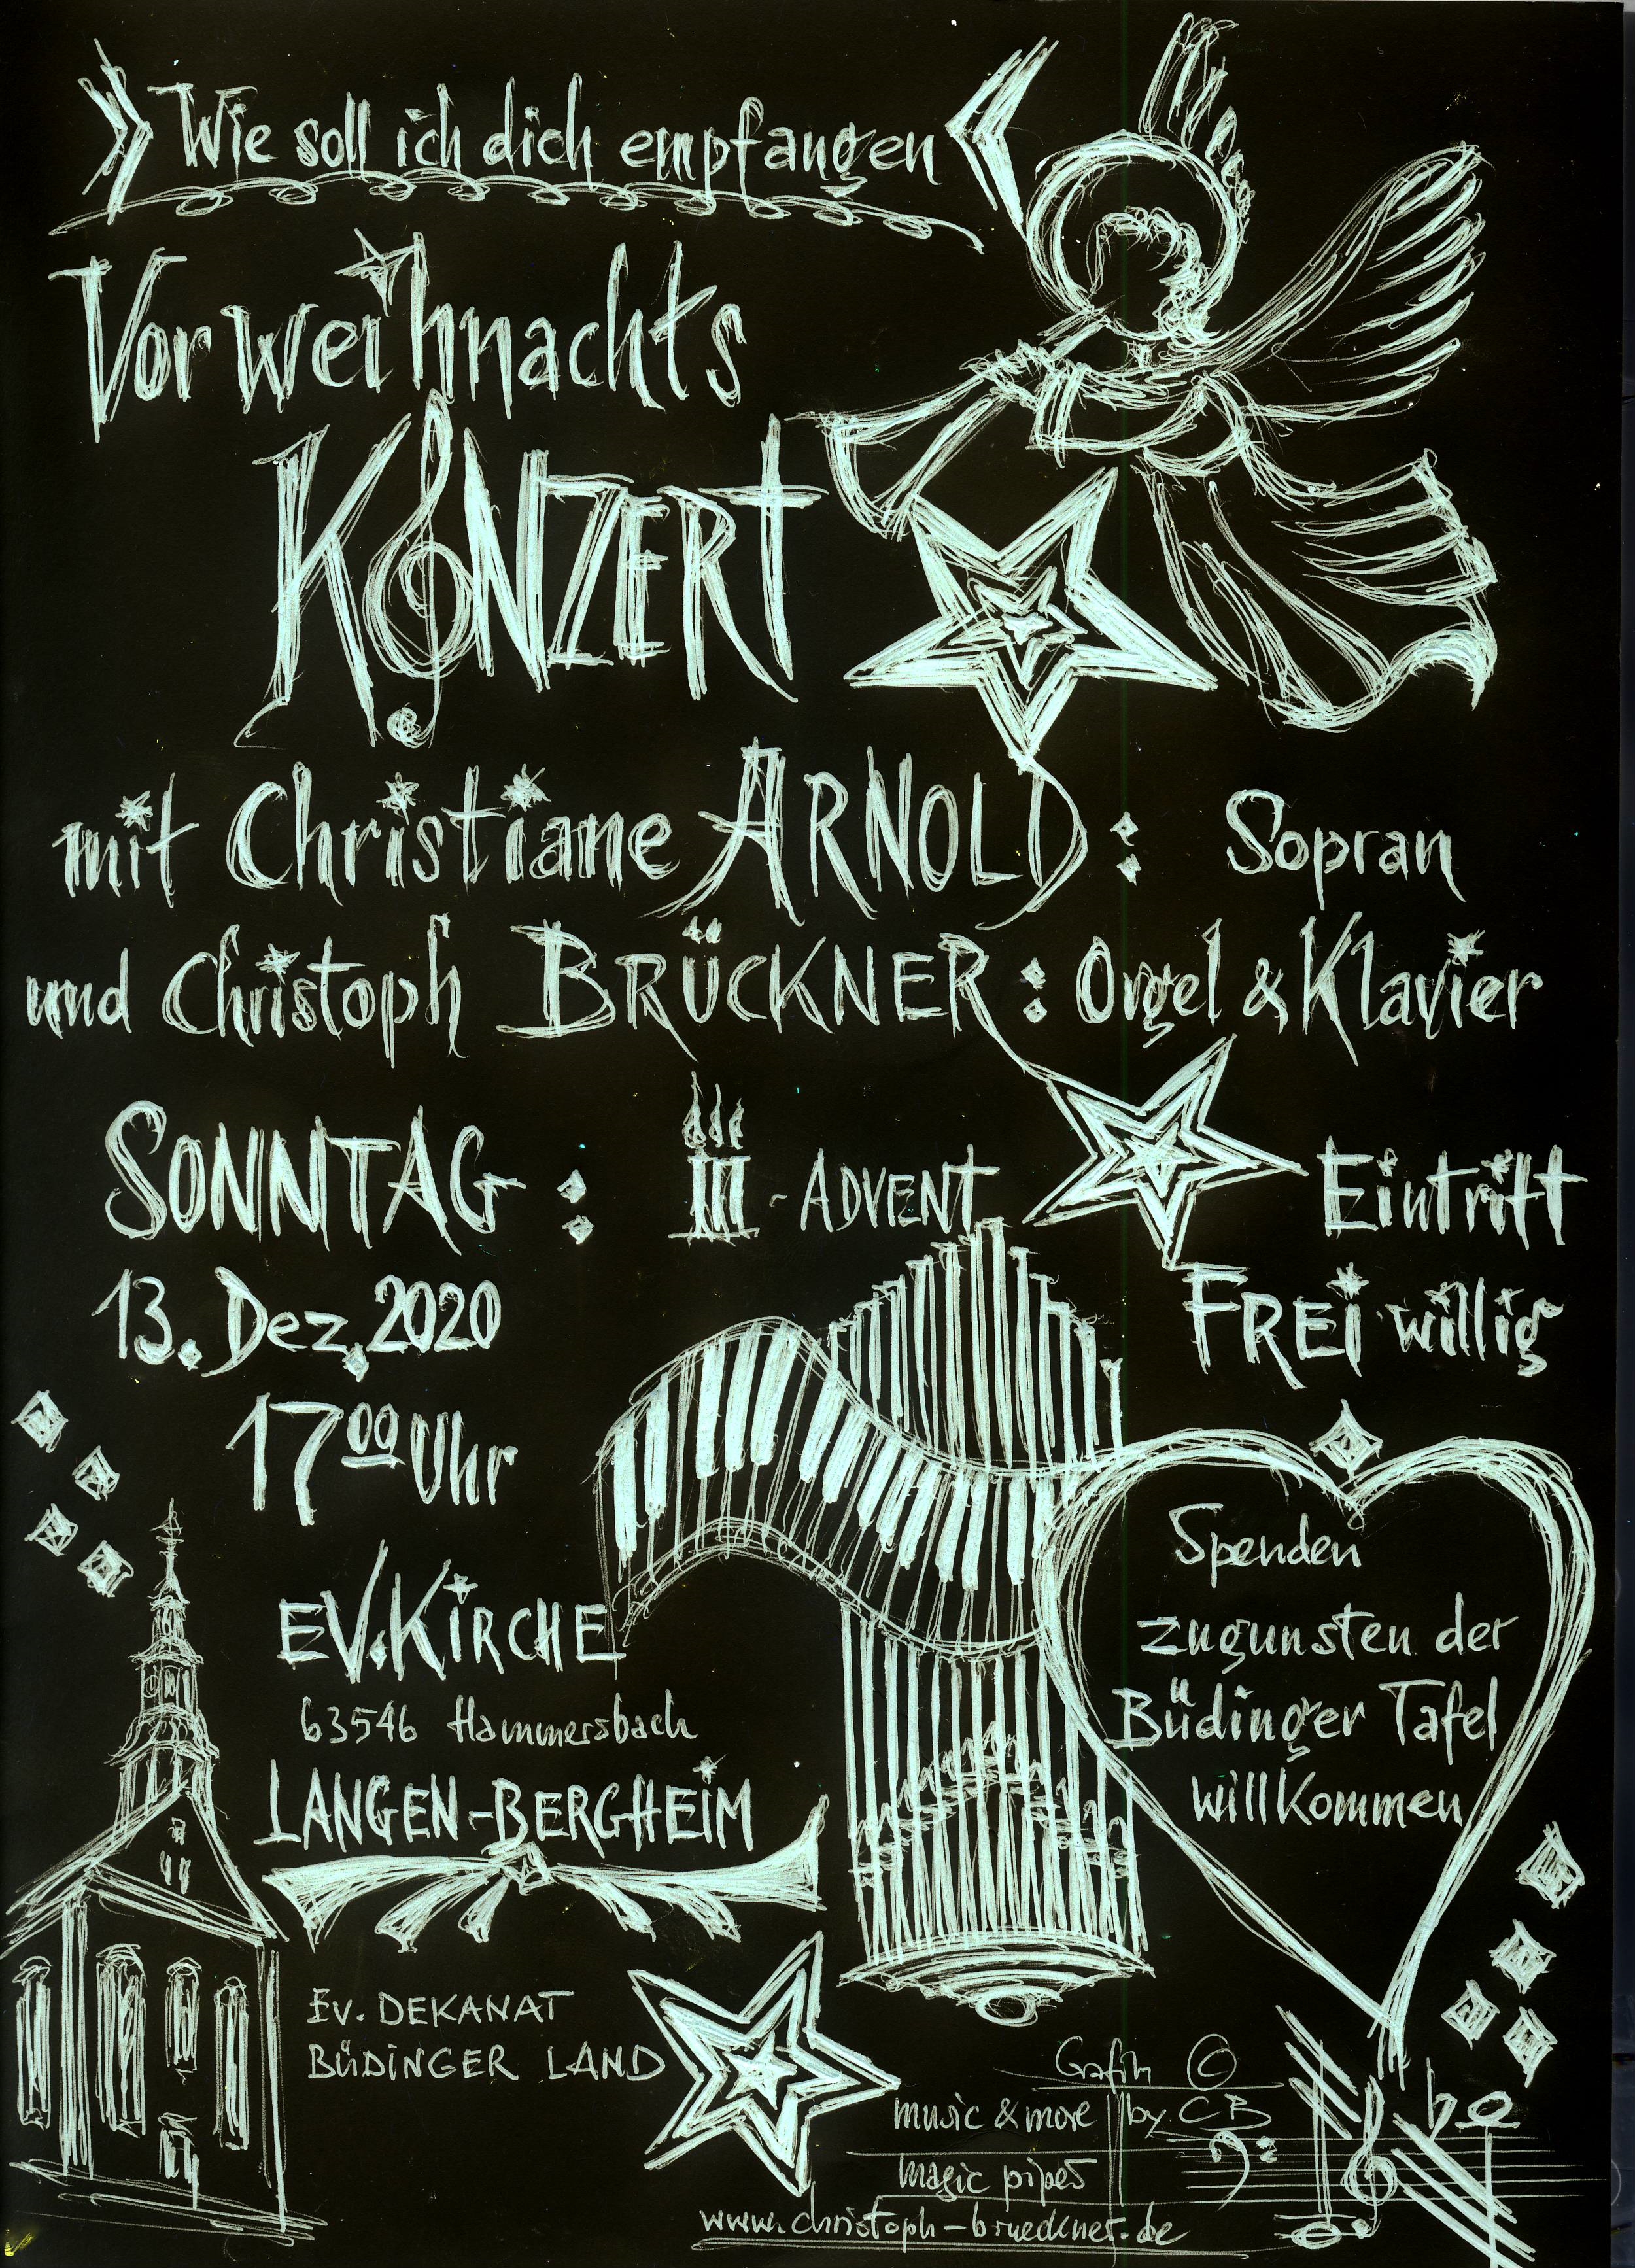 »Wie soll ich dich empfangen«
Vorweihnachts
KONZERT
mit Christiane ARNOLD: Sopran
und Christoph BRÜCKNER: Orgel & Klavier
SONNTAG: III-ADVENT
Eintritt
FREiwillig
13. Dez. 2020
17⁰⁰ Uhr
Spenden
zugunsten der
Büdinger Tafel
willkommen
EV. KiRCHE
63546 Hammersbach
LANGEN-BERGHEiM
EV. DEKANAT
BÜDiNGER LAND
Grafik ©
by CB
music & more
magic pipes
www.christoph-brueckner.de